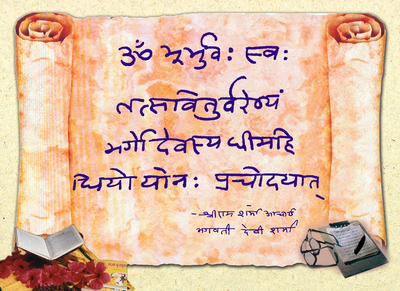 ॐ भूर्भुवः स्वः
तत्सवितुर्वरेण्यं
भर्गो देवस्य धीमहि
धियो योनः प्रचोदयात्
--श्रीराम शर्मा आचार्य
भगवती देवी शर्मा